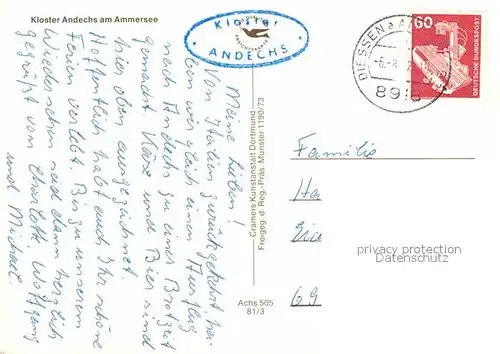 Kloster Andechs am Ammersee
Kloster
ANDECHS
Meine Lieben!
Von Italien zurückgekehrt, ha-
ben wir gleich einen Ausflug
nach Andechs zu einer Brotzeit
gemacht. Käse und Bier sind
hier oben ausgezeichnet.
Hoffentlich habt auch Ihr schöne
Ferien verlebt. Bis zu unserem
Wiedersehen seid dann herzlich
gegrüßt von Charlotte, Wolfgang
und Michael.
Cramers Kunstanstalt Dortmund
Freigeg. d. Reg.-Präs. Münster 1190/73
Achs 505
81/3
DIESSEN a A
8918
60
DEUTSCHE BUNDESPOST
Familie
Ha
69
copyright protection
www.ansichtskarten-center.de